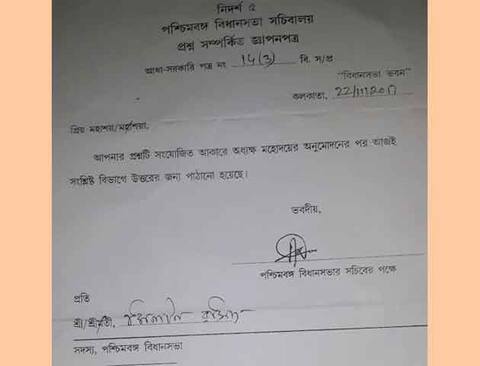 নিদর্শ ৫
পশ্চিমবঙ্গ বিধানসভা সচিবালয়
প্রশ্ন সম্পর্কিত জ্ঞাপনপত্র
আধা-সরকারি পত্র নং 14(3) বি. স/প্র
"বিধানসভা ভবন"
কলকাতা, 22/11/2017
প্রিয় মহাশয়/মহাশয়া,
আপনার প্রশ্নটি সংযোজিত আকারে অধ্যক্ষ মহোদয়ের অনুমোদনের পর আজই
সংশ্লিষ্ট বিভাগে উত্তরের জন্য পাঠানো হয়েছে।
ভবদীয়,
পশ্চিমবঙ্গ বিধানসভার সচিবের পক্ষে
প্রতি
শ্রী/শ্রীমতী,
সদস্য, পশ্চিমবঙ্গ বিধানসভা